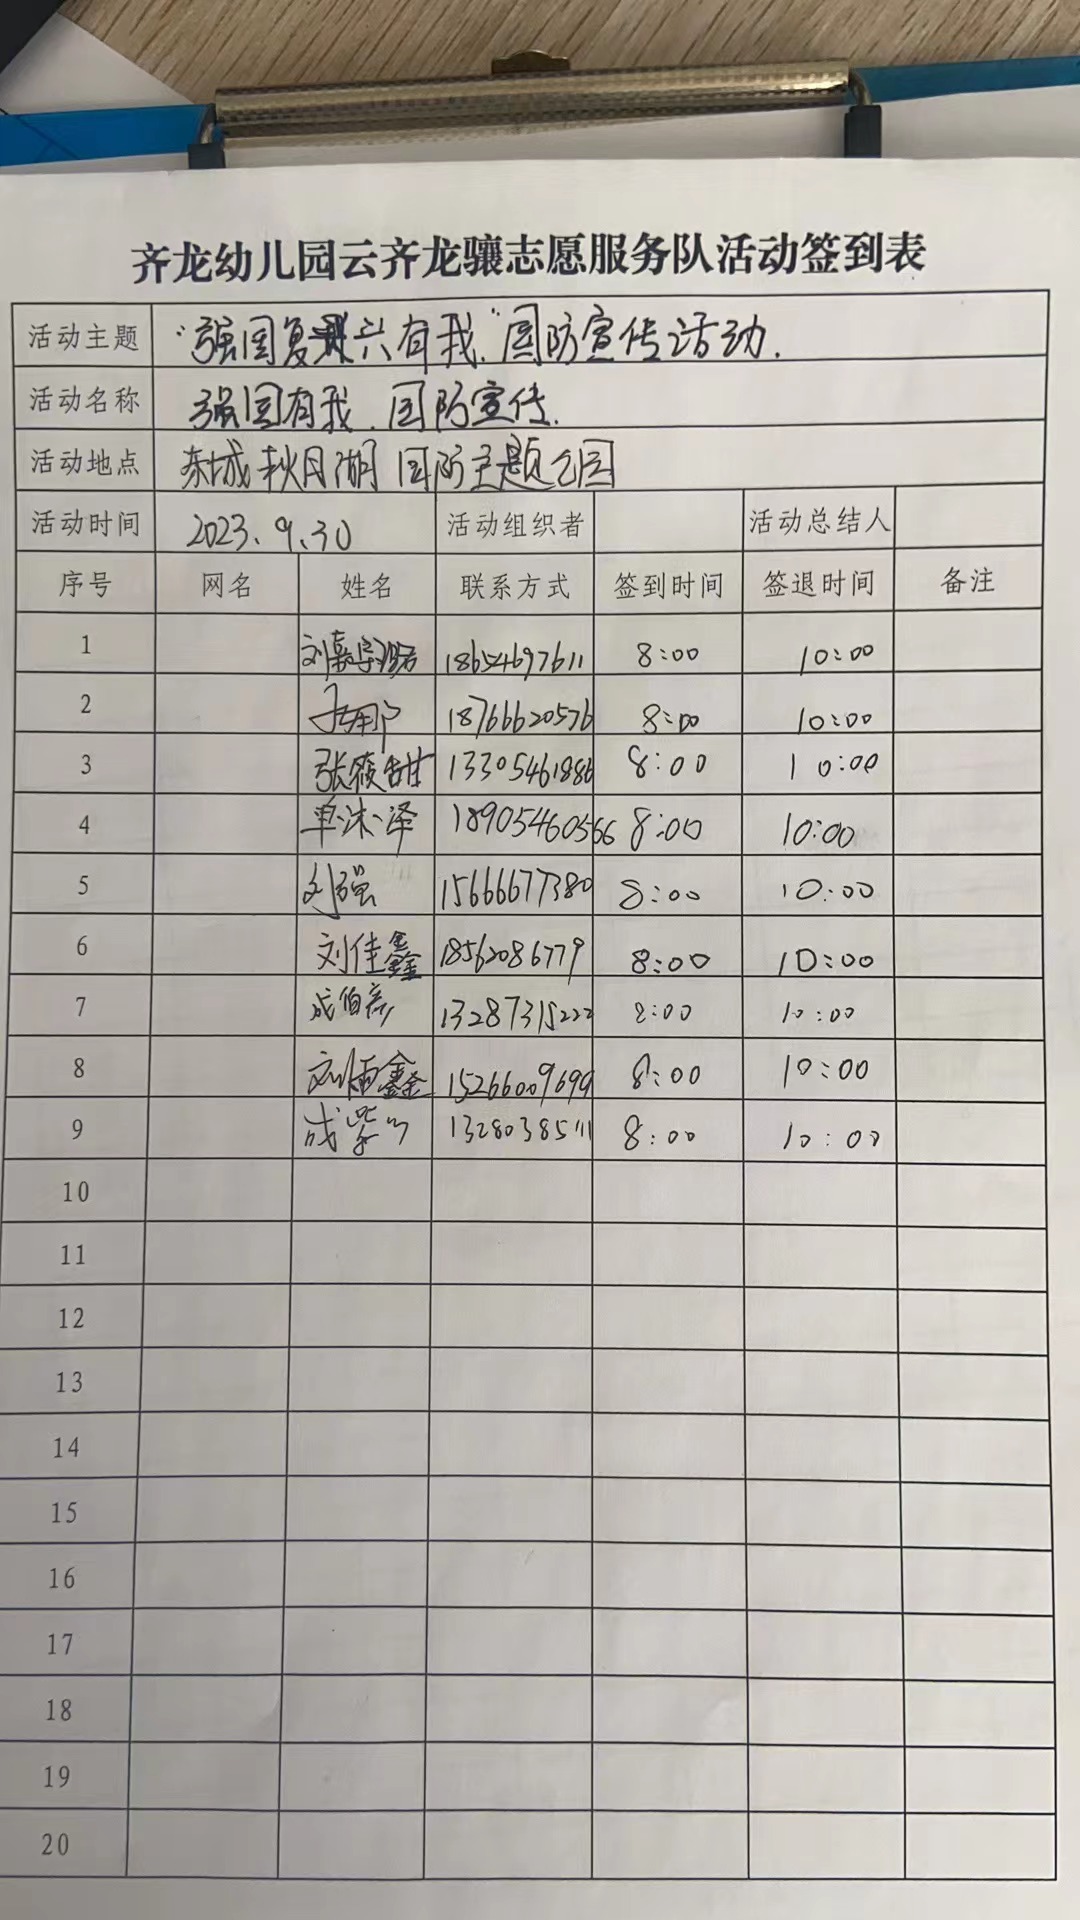 齐龙幼儿园云齐龙骧志愿服务队活动签到表
活动主题 “强国复兴有我”国防宣传活动.
活动名称 强国有我.国防宣传.
活动地点 东城秋月湖国防主题公园
活动时间 2023.9.30 活动组织者 活动总结人
序号 网名 姓名 联系方式 签到时间 签退时间 备注
1 18654697611 8:00 10:00
2 18766620576 8:00 10:00
3 张筱甜 13305461886 8:00 10:00
4 单沐泽 18905460566 8:00 10:00
5 刘强 15666677380 8:00 10:00
6 刘佳鑫 18562086779 8:00 10:00
7 成伯彦 13287315222 8:00 10:00
8 15266009699 8:00 10:00
9 13280385111 8:00 10:00
10
11
12
13
14
15
16
17
18
19
20